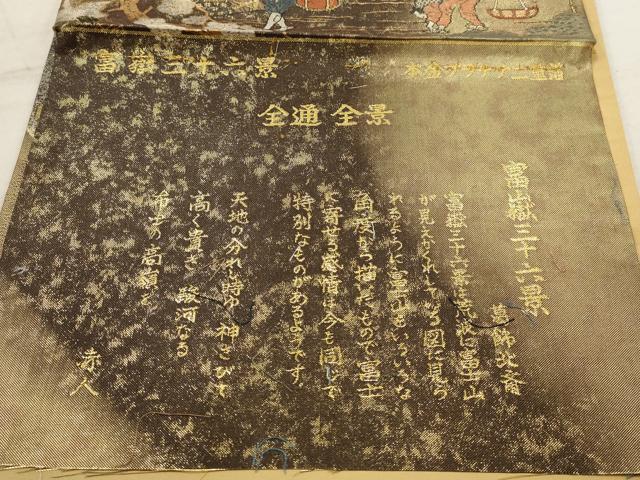 富嶽三十六景
本金プラチナ二重箔
全通 全景
富嶽三十六景
葛飾北斎
富嶽三十六景は荒波に富士山
が見えかくれしている図に見ら
れるように富士山をいろいろな
角度から描いたもので富士
に寄せる感情は今も同じで
特別なものがあるようです。
天地の分れし時ゆ 神さびて
高く貴き 駿河なる
布士の高嶺を
赤人